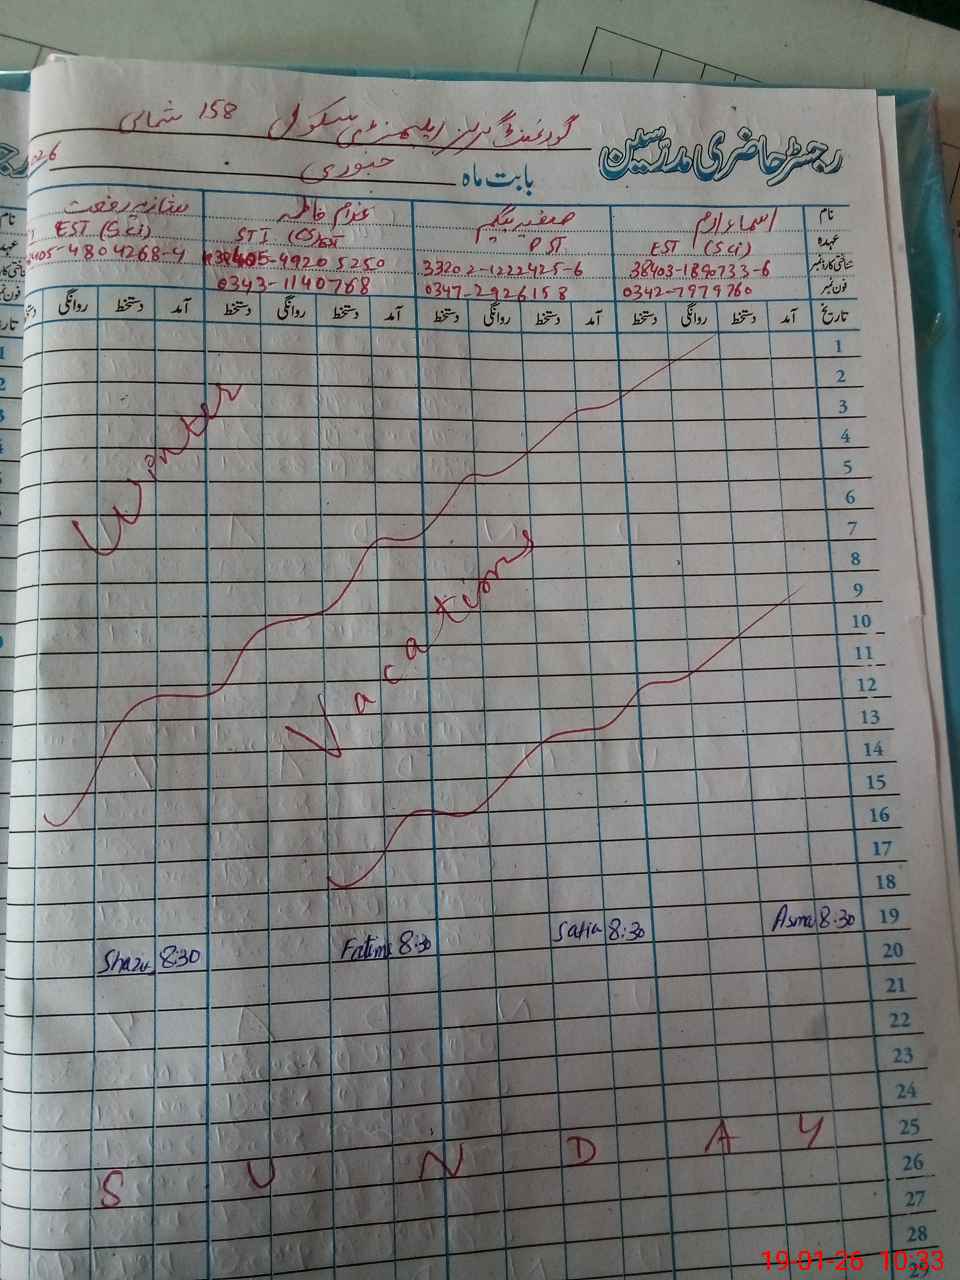 رجسٹر حاضری مدرسین گورنمنٹ گرلز ایلیمنٹری سکول 158 شمالی
بابت ماہ جنوری
نام اسماء ارم صفیہ بیگم فاطمہ شازیہ رفعت
عہدہ EST (Sci) PST STI EST (Sci)
شناختی کارڈ نمبر 38403-1890733-6 33202-1222425-6
فون نمبر 0342-7979760 0347-2926158 0343-1140768
تاریخ آمد دستخط روانگی دستخط آمد دستخط روانگی دستخط آمد دستخط روانگی دستخط آمد دستخط روانگی
1
2
3
4
5
6
7
8
9
10
11
12
13
14
15
16
17
18
Winter
Vacations
19 Asma 8:30 Safia 8:30 Fatima 8:30 Shazu 8:30
20
21
22
23
24
25 SUNDAY
26
27
28
29
19-01-26 10:33